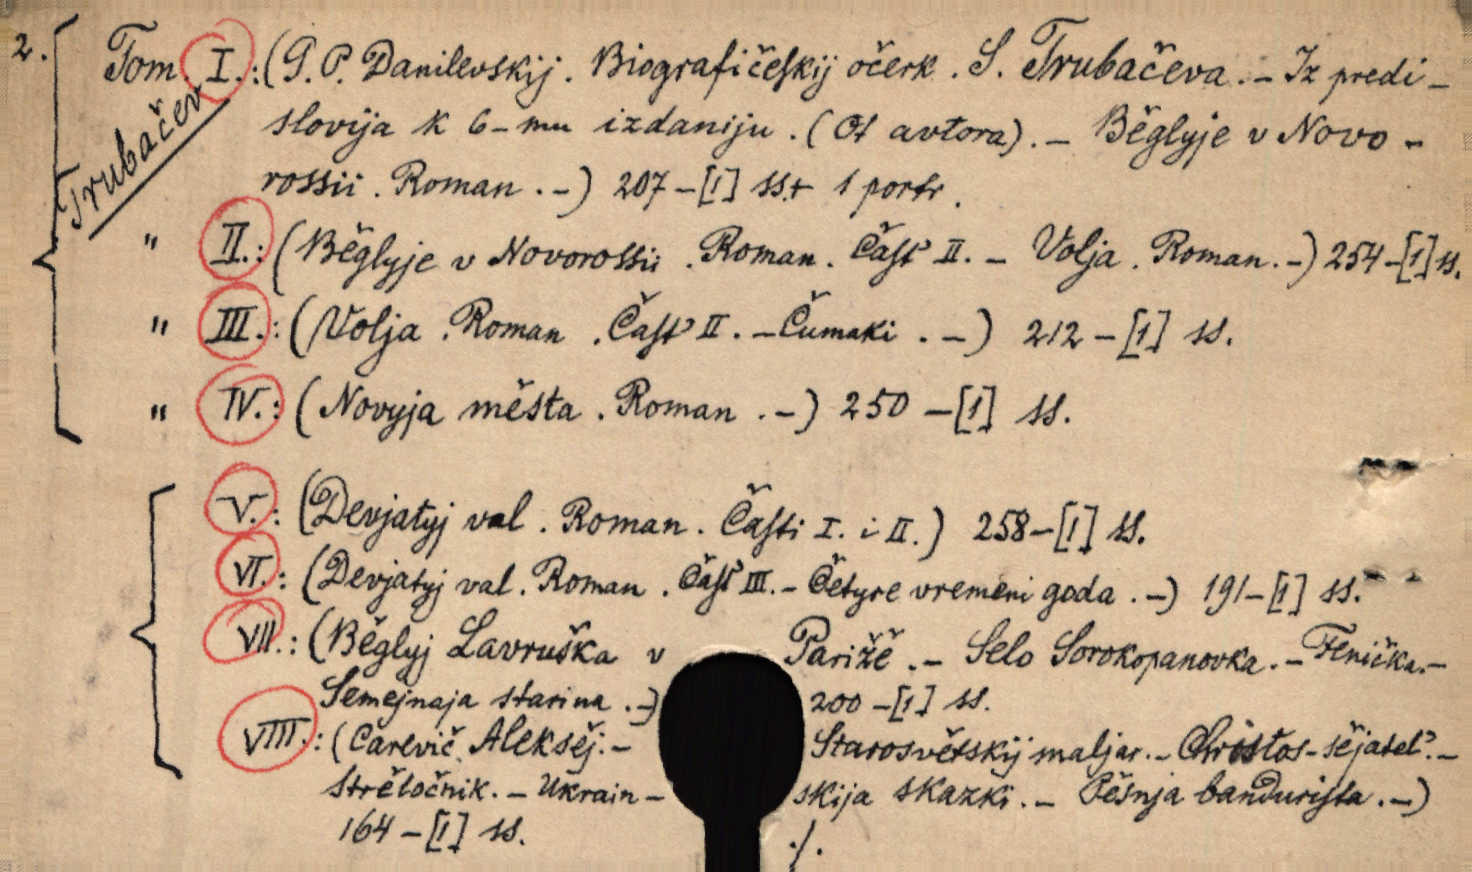 2.
Tom. I.: (G. P. Danilevskij. Biografičeskij očerk. S. Trubačeva. – Iz predi-
Trubačev
slovija k 6-mu izdaniju. (Ot avtora). – Běglyje v Novo-
rossii. Roman. –) 207–[1] ss. + 1 portr.
" II.: (Běglyje v Novorossii. Roman. Čast' II. – Volja. Roman. –) 254–[1] ss.
" III.: (Volja. Roman. Čast' II. – Čumaki. –) 212–[1] ss.
" IV.: (Novyja města. Roman. –) 250–[1] ss.
V.: (Devjatyj val. Roman. Časti I. i II.) 258–[1] ss.
VI.: (Devjatyj val. Roman. Čast' III. – Četyre vremeni goda. –) 191–[1] ss.
VII.: (Běglyj Lavruška v Parižě. – Selo Sorokopanovka. – Fenička. –
Semejnaja starina. –) 200–[1] ss.
VIII.: (Carevič Aleksěj. – Starosvětskij maljar. – Christos-sějatel'. –
Strěločnik. – Ukrain-skija skazki. – Pěsnja bandurista. –)
164–[1] ss.
./.